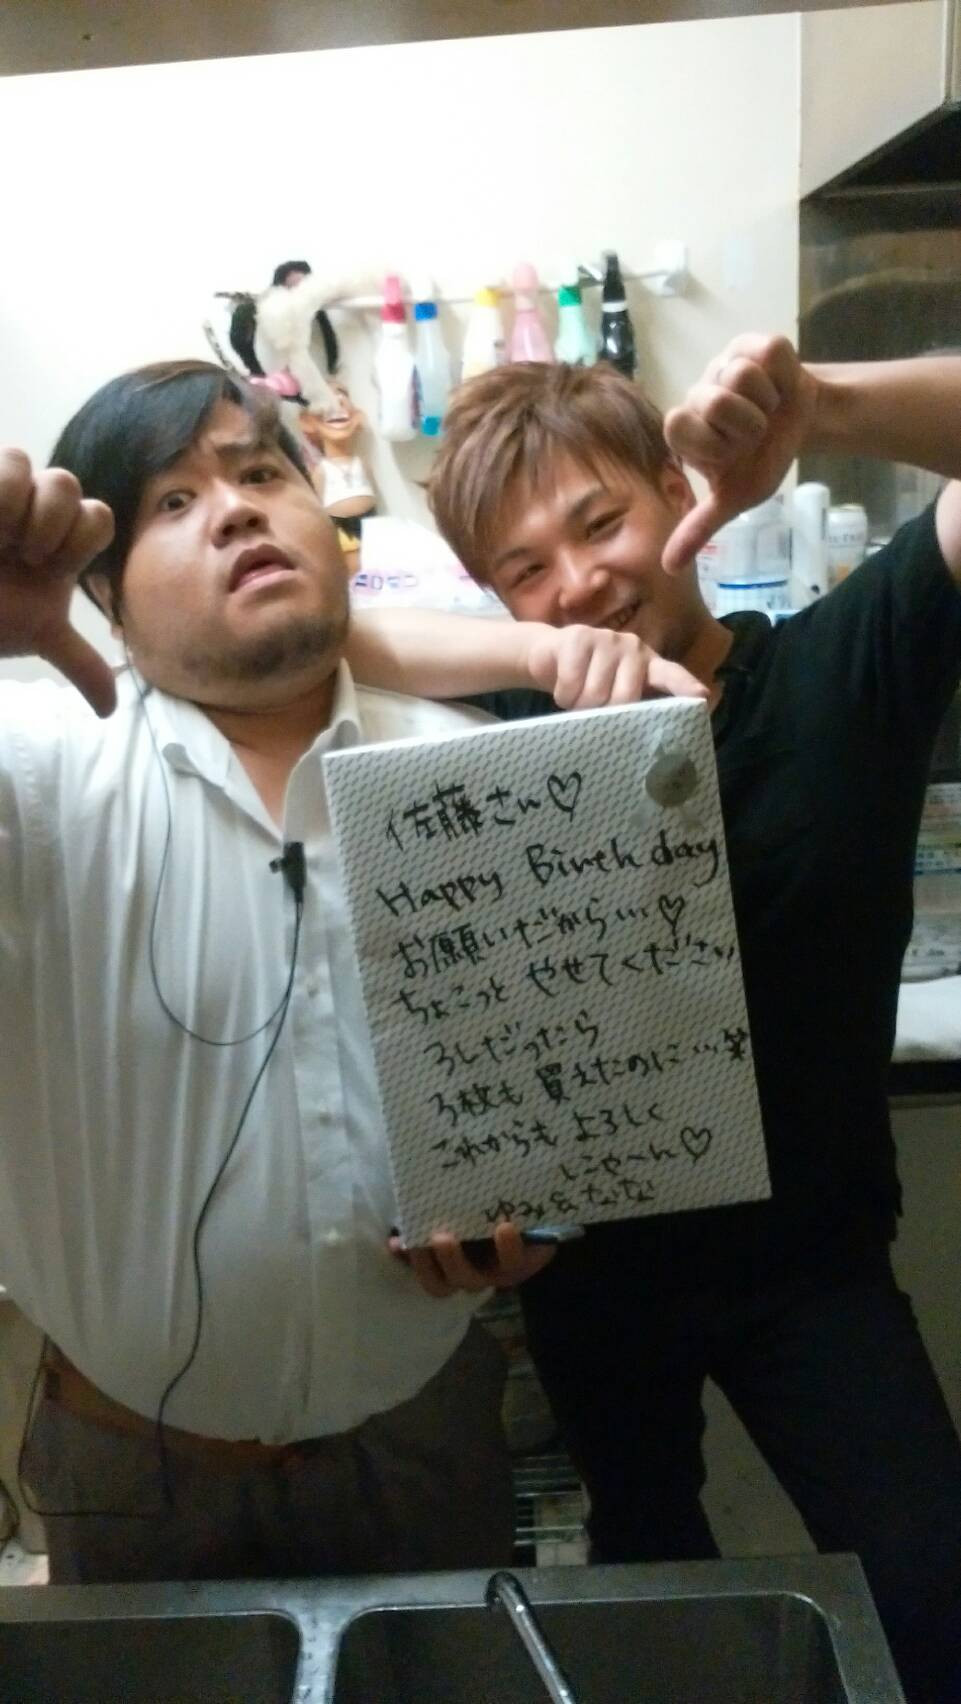 佐藤さん♡
Happy Birthday
お願いだから…♡
ちょこっと やせてください
3Lだったら
3枚も買えたのに…笑
これからもよろしく
にゃ〜ん♡
ゆみ&なな